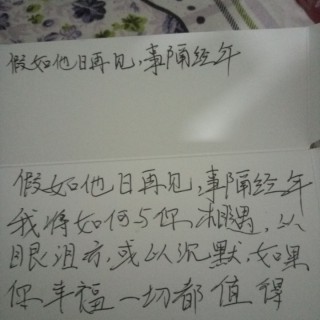 假如他日再见，事隔经年
假如他日再见，事隔经年
我将如何与你相遇，以
眼泪亦，或以沉默，如果
你幸福一切都值得